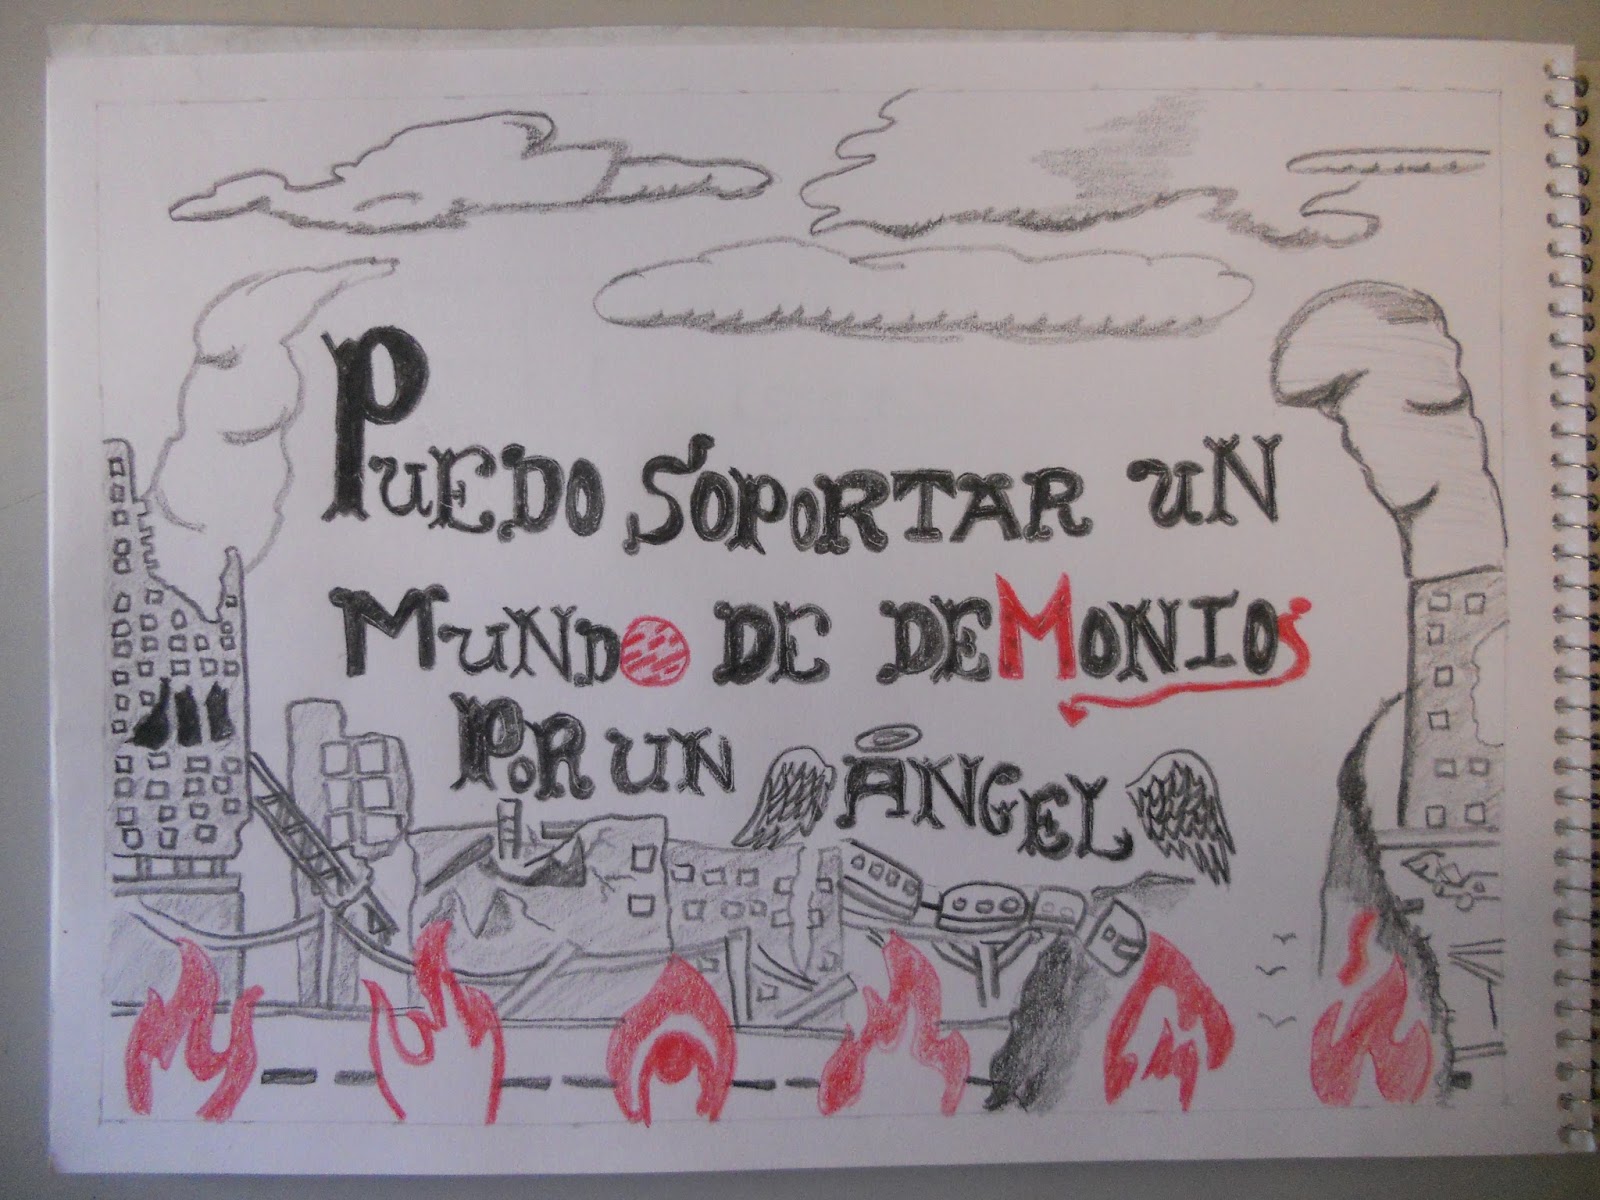 PUEDO SOPORTAR UN
MUNDO DE DEMONIOS
POR UN ANGEL